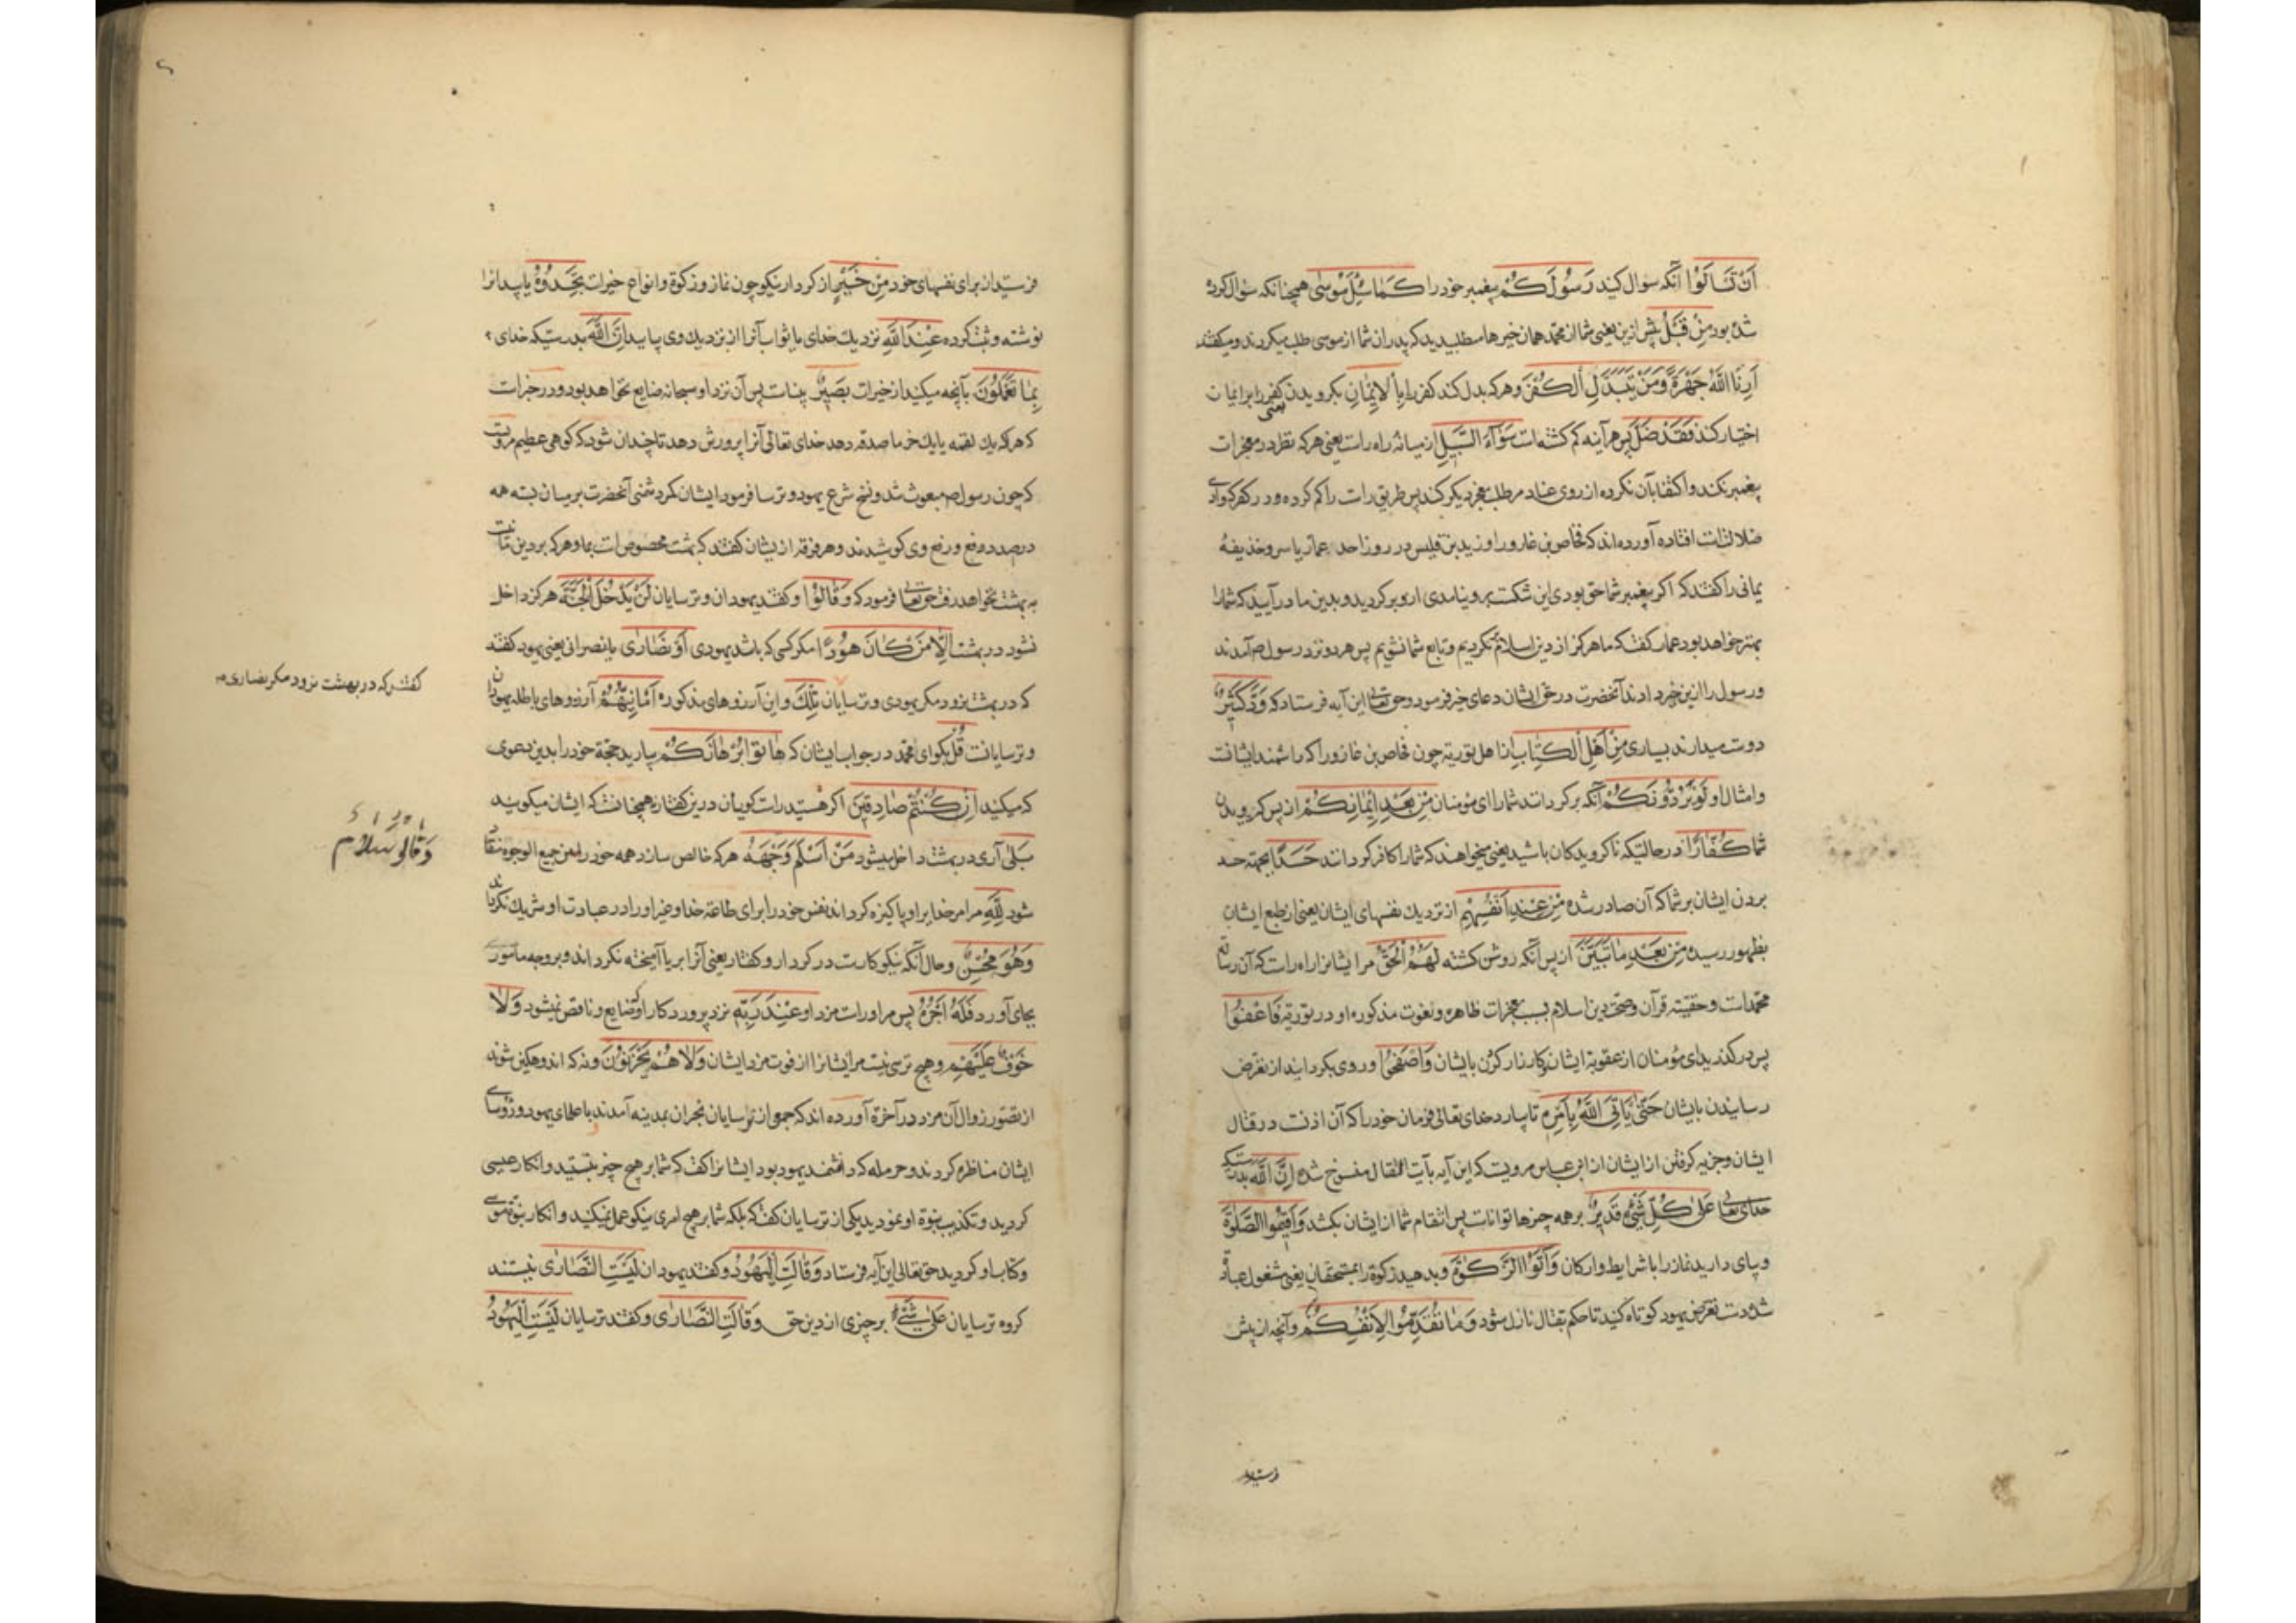 اَنْ تَسْأَلُوا آنکه سوال کنید رَسُولَكُمْ پیغمبر خود را كَمَا سُئِلَ مُوسٰی همچنانکه سؤال کرده
شده بود مِنْ قَبْلُ پیش ازین یعنی شما از محمد همان خیرها مطلبیدید که پدران شما از موسی طلب میکردند و میگفتند
اَرِنَا اللّٰهَ جَهْرَةً وَمَنْ يَتَبَدَّلِ الْكُفْرَ و هرکه بدل کند کفر را بِالْاِيمَانِ بکرویدن یعنی کفر را بر ایمان
اختیار کند فَقَدْ ضَلَّ پس هرآینه کم کشته است سَوَآءَ السَّبِيلِ از میانه راه راست یعنی هرکه نظر در معجزات
پیغمبر نکند و اکتفا بآن نکرده از روی عناد طلب معجزه دیکر کند پس طریق راست را کم کرده و در کفر کوادی
ضلالتست افتاده آورده‌اند که فخاص بن عازورا و زید بن قیس در روز احد عمار یاسر و حذیفه
یمانی را کفتند که اکر پیغمبر شما حق بودی این شکست برو نیامدی ازو برکردید و بدین ما درآیید که شما را
بهتر خواهد بود عمار کفت که ما هرکز از دین اسلام نکردیم و تابع شما نشویم پس هر دو نزد رسول ص آمدند
و رسول را ازین خبر دادند آنحضرت در حق ایشان دعای خیر فرمود و حق تعالی این آیه فرستاد که وَدَّ كَثِيرٌ
دوست میدارند بسیاری مِنْ اَهْلِ الْكِتَابِ از اهل توریة چون فخاص بن عازورا که دانشمند ایشانست
و امثال او لَوْ يَرُدُّونَكُمْ آنکه برکردانند شما را ای مؤمنان مِنْ بَعْدِ اِيمَانِكُمْ از پس کرویدن
شما كُفَّارًا در حالتیکه ناکرویدکان باشید یعنی میخواهند که شما را کافر کردانند حَسَدًا بجهة حسد
بردن ایشان بر شما که آن صادر شده مِنْ عِنْدِ اَنْفُسِهِمْ از نزدیک نفسهای ایشان یعنی از طبع ایشان
بظهور رسیده مِنْ بَعْدِ مَا تَبَيَّنَ از پس آنکه روشن کشته لَهُمُ الْحَقُّ مر ایشانرا راه راست که آن رسالة
محمدست و حقیة قرآن و صحة دین اسلام بسبب معجزات ظاهره و نعوت مذکوره او در توریة فَاعْفُوا
پس درکذرید ای مؤمنان از عقوبة ایشان و کارزار کردن بایشان وَاصْفَحُوا و روی بکردانید از تعرض
رسانیدن بایشان حَتّٰى يَأْتِيَ اللّٰهُ بِاَمْرِهِ تا بیارد خدای تعالی فرمان خود را که آن اذنست در قتال
ایشان و جزیه کرفتن از ایشان از ابن عباس مرویست که این آیه بآیت القتال منسوخ شده اِنَّ اللّٰهَ بدرستیکه
خدای تعالی عَلٰى كُلِّ شَيْءٍ قَدِيرٌ بر همه چیزها تواناست پس انتقام شما از ایشان بکشد وَاَقِيمُوا الصَّلٰوةَ
و بپای دارید نماز را با شرایط و ارکان وَاٰتُوا الزَّكٰوةَ و بدهید زکوة را بمستحقان یعنی مشغول بعبادة
شده دست تعرض یهود کوتاه کنید تا حکم بقتال نازل شود وَمَا تُقَدِّمُوا لِاَنْفُسِكُمْ و آنچه از پیش
فرستید
فرستید از برای نفسهای خود مِنْ خَيْرٍ از کردار نیکو چون نماز و زکوة و انواع خیرات تَجِدُوهُ یابید آنرا
نوشته و ثبت کرده عِنْدَ اللّٰهِ نزدیک خدای یا ثواب آنرا از نزدیک وی یابید اِنَّ اللّٰهَ بدرستیکه خدای
بِمَا تَعْمَلُونَ بآنچه میکنید از خیرات بَصِيرٌ بیناست پس آن نزد او سبحانه ضایع نخواهد بود و در خبرست
که هرکه یک لقمه یا یک خرما صدقه دهد خدای تعالی آنرا پرورش دهد تا چندان شود که کوهی عظیم مرویست
که چون رسول ص مبعوث شد و نسخ شرع یهود و ترسا فرمود ایشان کمر دشمنی آنحضرت بر میان بسته همه
در صدد دفع و رفع وی کوشیدند و هر فرقه از ایشان کفتند که بهشت مخصوص است بما و هرکه بر دین ماست
به بهشت نخواهد رفت حق تعالی فرمود که وَقَالُوا و کفتند یهودان و ترسایان لَنْ يَدْخُلَ الْجَنَّةَ هرکز داخل
نشود در بهشت اِلَّا مَنْ كَانَ هُودًا مکر کسی که باشد یهودی اَوْ نَصَارٰى یا نصرانی یعنی یهود کفتند
که در بهشت نرود مکر یهودی و ترسایان تِلْكَ و این آرزوهای مذکوره اَمَانِيُّهُمْ آرزوهای باطله یهودان
کفتند که در بهشت نرود مکر نصاری
و ترسایانست قُلْ بکو ای محمد در جواب ایشان که هَاتُوا بُرْهَانَكُمْ بیارید حجة خود را بدین دعوی
که میکنید اِنْ كُنْتُمْ صَادِقِينَ اکر هستید راست کویان درین کفتار نه همچنانست که ایشان میکویند
بَلٰى آری در بهشت داخل میشود مَنْ اَسْلَمَ وَجْهَهُ هرکه خالص سازد همه خود را من جمیع الوجوه منقاد
شود لِلّٰهِ مر امر خدایرا و پاکیزه کرداند نفس خود را برای طاعة خدا و غیر او را در عبادت او شریک نکرداند
وَهُوَ مُحْسِنٌ و حال آنکه نیکوکارست در کردار و کفتار یعنی آنرا بریا آمیخته نکرداند و بر وجه مأمور
بجای آورد فَلَهُ اَجْرُهُ پس مر او راست مزد او عِنْدَ رَبِّهِ نزد پروردکار او که ضایع و ناقص نمیشود وَلَا
خَوْفٌ عَلَيْهِمْ و هیچ ترسی نیست مر ایشانرا از فوت مزد ایشان وَلَا هُمْ يَحْزَنُونَ و نه که اندوهکین شوند
از تصور زوال آن مزد در آخرة آورده‌اند که جمعی از ترسایان نجران بمدینه آمدند با علمای یهود و رؤسای
ایشان مناظره کردند و حرمله که دانشمند یهود بود ایشانرا کفت که شما بر هیچ چیز نیستید و انکار عیسی
کردید و تکذیب نبوة او نمودید یکی از ترسایان کفت که بلکه شما بر هیچ امری نیکو عمل نمیکنید و انکار نبوة موسی
و کتاب او کردید حق تعالی این آیه فرستاد وَقَالَتِ الْيَهُودُ و کفتند یهودان لَيْسَتِ النَّصَارٰى نیستند
کروه ترسایان عَلٰى شَيْءٍ بر چیزی از دین حق وَقَالَتِ النَّصَارٰى و کفتند ترسایان لَيْسَتِ الْيَهُودُ